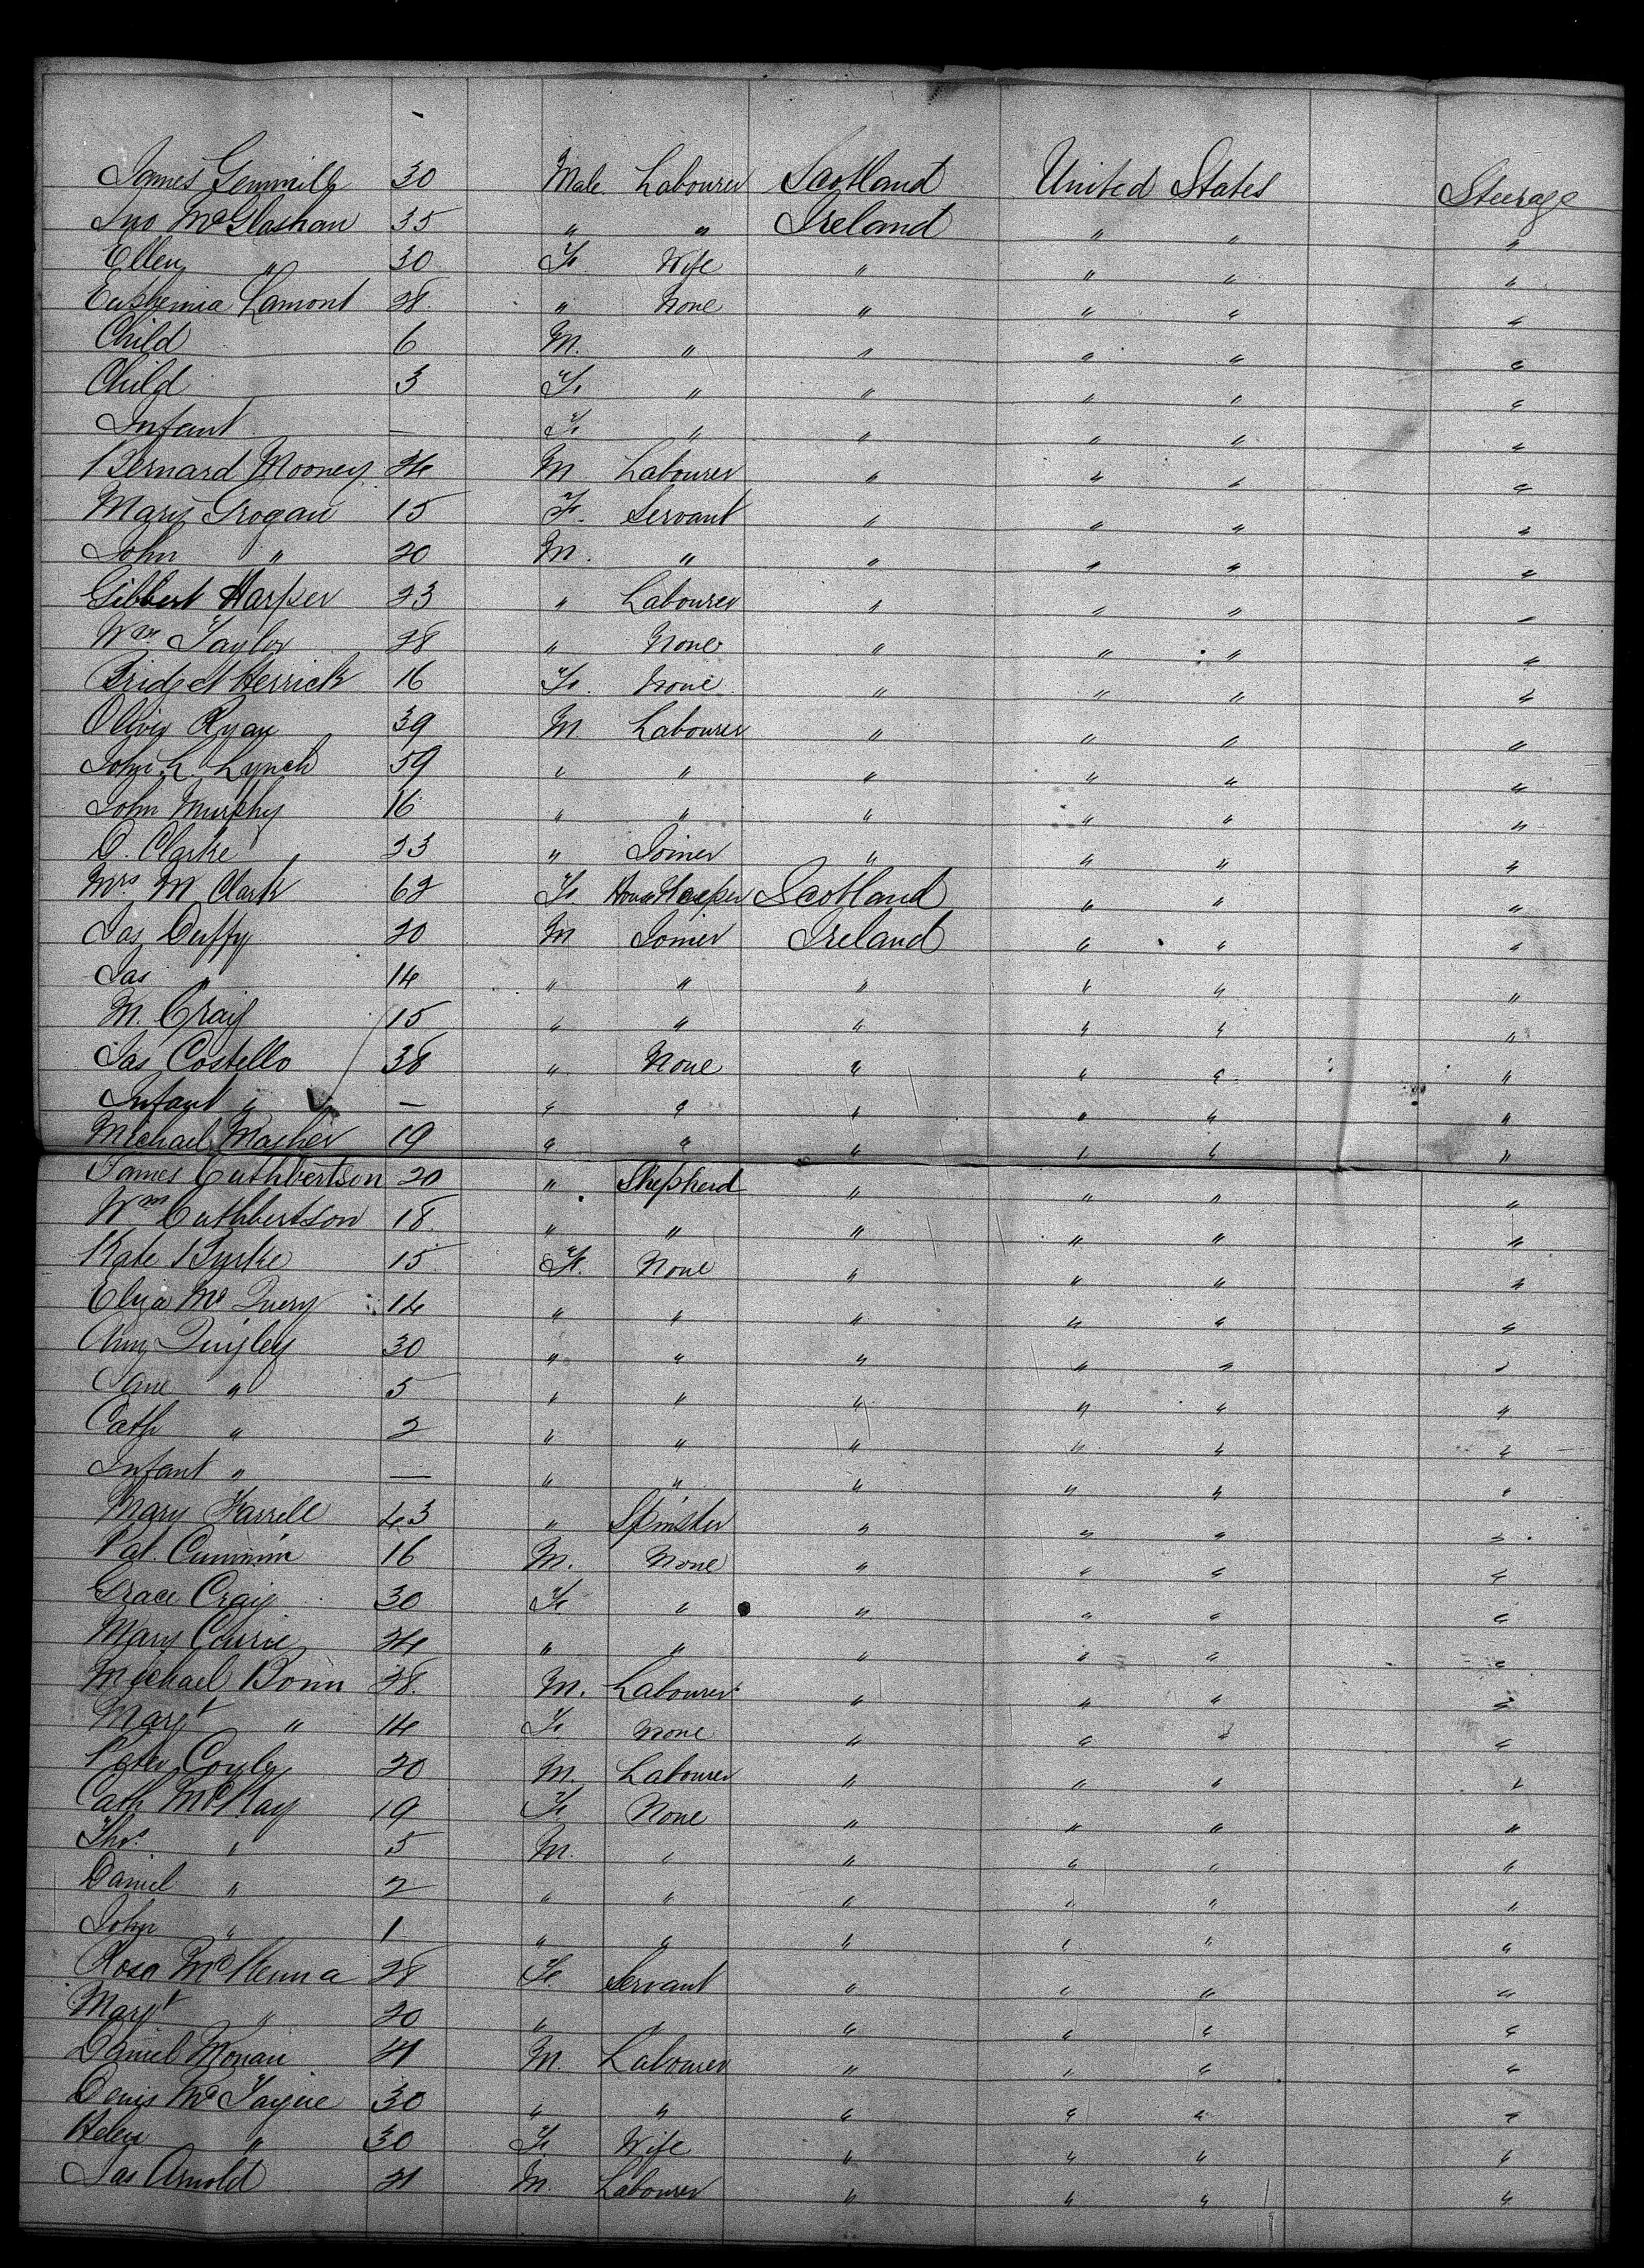 James Gemmill 30 Male Labourer Scotland United States Steerage
Jno McGlashan 35 " " Ireland " " "
Ellen " 30 F. Wife " " " "
Euphemia Lamont 28 " None " " " "
Child 6 M. " " " " "
Child 3 F. " " " " "
Infant — F. " " " " "
Bernard Mooney 24 M Labourer " " " "
Mary Grogan 15 F. Servant " " " "
John " 20 M. " " " " "
Gibbert Harper 23 " Labourer " " " "
Wm Taylor 28 " None " " " "
Bridget Herrick 16 F. None " " " "
Oliver Ryan 39 M. Labourer " " " "
John L. Lynch 59 " " " " " "
John Murphy 16 " " " " " "
D. Clarke 23 " Joiner " " " "
Mrs M Clark 62 F. HouseKeeper Scotland " " "
Jas Duffy 20 M Joiner Ireland " " "
Jas " 14 " " " " " "
M. Craig 15 " " " " " "
Jas Costello 38 " None " " " "
Infant " — " " " " " "
Michael 19 " " " " " "
James Cuthbertson 20 " Shepherd " " " "
Wm Cuthbertson 18 " " " " " "
Kate Burke 15 F. None " " " "
Eliza Mc 14 " " " " " "
Ann Quigley 30 " " " " " "
Jane " 5 " " " " " "
Cath " 2 " " " " " "
Infant " — " " " " " "
Mary Farrell 43 " Spinster " " " "
Pat. Cummin 16 M. None " " " "
Grace Craig 30 F. " " " " "
Mary Currie 24 " " " " " "
Michael 28 M. Labourer " " " "
Margt " 14 F. None " " " "
Peter Coyle 20 M. Labourer " " " "
Cath McKay 19 F. None " " " "
Thos " 5 M. " " " " "
Daniel " 2 " " " " " "
John " 1 " " " " " "
Rosa McKenna 28 F. Servant " " " "
Margt " 20 " " " " " "
Daniel Monan 21 M. Labourer " " " "
Denis Mc 30 " " " " " "
Helen " 30 F. Wife " " " "
Jas Arnold 21 M. Labourer " " " "